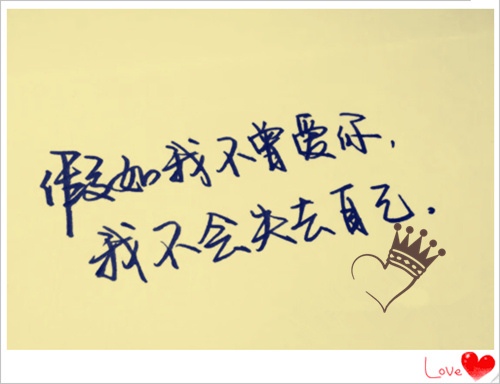 假如我不曾爱你，
我不会失去自己．
Love